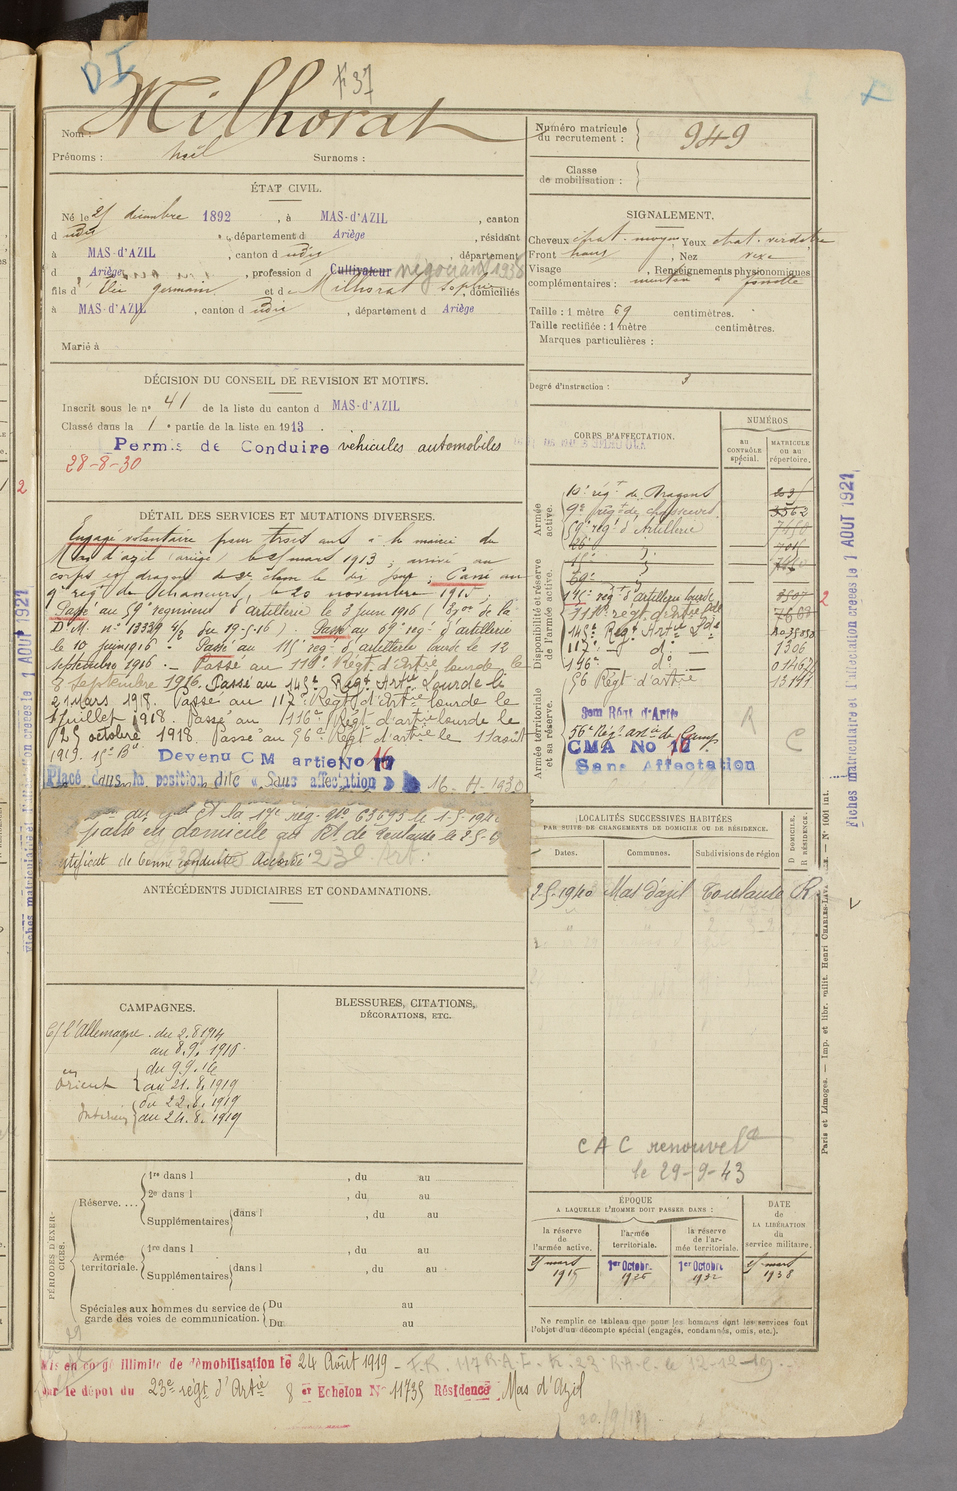 DI
K 37
Nom : Milhorat
Prénoms : Noël Surnoms :
ÉTAT CIVIL.
Né le 25 décembre 1892, à MAS-d'AZIL, canton
d udit, département d Ariège, résidant
à MAS-d'AZIL, canton d udit, département
d Ariège, profession d Cultivateur négociant 1938
fils d' Elie germain et de Milhorat Sophie, domiciliés
à MAS-d'AZIL, canton d udit, département d Ariège
Marié à
DÉCISION DU CONSEIL DE REVISION ET MOTIFS.
Inscrit sous le n° 41 de la liste du canton d MAS-d'AZIL
Classé dans la 1e partie de la liste en 1913.
Permis de Conduire véhicules automobiles
28-8-30
DÉTAIL DES SERVICES ET MUTATIONS DIVERSES.
Engagé volontaire pour trois ans à la mairie du
Mas d'azil (ariège) le mars 1913 ; arrivé au
corps et dragon de 2e classe le dit jour ; Passé au
9e rég. de chasseurs, le 20 novembre 1915 ;
Passé au 59e régiment d'artillerie le 3 juin 1916 de la
D.M. n° 13329 4/2 du 19-5-16) Passé au régt d'artillerie
le 10 juin 1916 - Passé au 115e régt d'artillerie lourde le 12
Septembre 1916. - Passé au 118e Régt d'Artrie lourde le
8 Septembre 1916. Passé au 145e Régt Artie Lourde le
21 Mars 1918. Passé au 117e Régt d'Artrie lourde le
juillet 1918. Passé au 116e Régt d'artrie lourde le
25 octobre 1918. Passé au 56e Régt d'artrie le 11 août
1919.
Devenu CM artie No 17
Placé dans la position dite « Sans affectation » le 16-4-1930
la 17e rég. N° 63693 le 1-5-1940
passé en domicile au Rt de Toulouse le 25-
Certificat de bonne conduite Accordé 23e Art.
ANTÉCÉDENTS JUDICIAIRES ET CONDAMNATIONS.
CAMPAGNES.
C/ l'Allemagne. du 2.8.1914
au 8.9.1916.
en Orient du 9.9.16
au 21.8.1919
Intérieur du 22.8.1919
au 24.8.1919
BLESSURES, CITATIONS,
DÉCORATIONS, ETC.
PÉRIODES D'EXERCICES.
Réserve....
1re dans l , du au
2e dans l , du au
Supplémentaires dans l , du au
Armée territoriale.
1re dans l , du au
Supplémentaires dans l , du au
Spéciales aux hommes du service de garde des voies de communication.
Du au
Du au
Mis en congé illimité de démobilisation le 24 Août 1919
par le dépot du 23e régt d'Artie 8er Echelon N° 11735 Résidence Mas d'Azil
Numéro matricule du recrutement : 949
Classe de mobilisation :
SIGNALEMENT.
Cheveux chat. moyen Yeux chat. verdâtre
Front haut, Nez vexe
Visage , Renseignements physionomiques
complémentaires : menton à fossette
Taille : 1 mètre 69 centimètres.
Taille rectifiée : 1 mètre centimètres.
Marques particulières :
Degré d'instruction : 3
CORPS D'AFFECTATION.
NUMÉROS
au CONTRÔLE spécial.
MATRICULE ou au répertoire.
Armée active.
Disponibilité et réserve de l'armée active.
Armée territoriale et sa réserve.
10e régt de Dragons
9e régt de chasseurs 3562
59e régt d'Artillerie
115e régt d'artillerie lourde
118e régt d'artrie lde
145e Régt Artie Lde
117e d° 1306
116e d°
56 Régt d'artrie 13141
56e Régt art de Camp
CMA No 17
Sans Affectation
R
C
LOCALITÉS SUCCESSIVES HABITÉES
PAR SUITE DE CHANGEMENTS DE DOMICILE OU DE RÉSIDENCE.
D DOMICILE. R RÉSIDENCE.
Dates. Communes. Subdivisions de région
2-5-1940 Mas d'azil Toulouse R.
CAC renouvelée
le 29-9-43
ÉPOQUE
A LAQUELLE L'HOMME DOIT PASSER DANS :
la réserve de l'armée active.
l'armée territoriale.
la réserve de l'armée territoriale.
DATE de LA LIBÉRATION du service militaire.
1er Octobre 1926
1er Octobre 1932
mars 1938
Ne remplir ce tableau que pour les hommes dont les services font
l'objet d'un décompte spécial (engagés, condamnés, omis, etc.).
Fiches matriculaire et d'affectation créées le 1 AOUT 1921
2
Paris et Limoges. — Imp. et libr. milit. Henri CHARLES-LAVAUZELLE. — N° 1001 int.
Fiches matriculaire et créées le 1 AOUT 1921
2